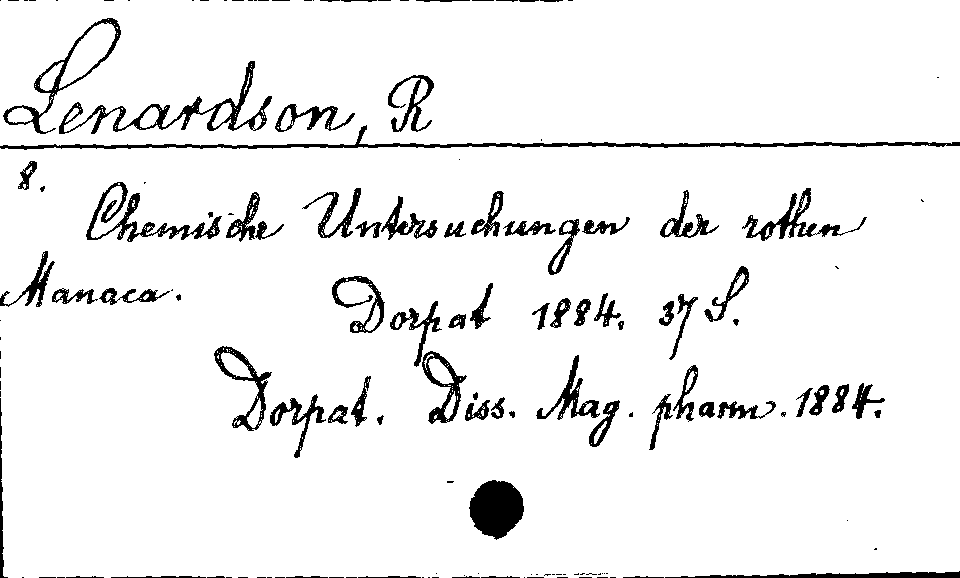 Lenardson, R
8.
Chemische Untersuchungen der rothen
Manaca.
Dorpat 1884. 37 S.
Dorpat. Diss. Mag. pharm. 1884.